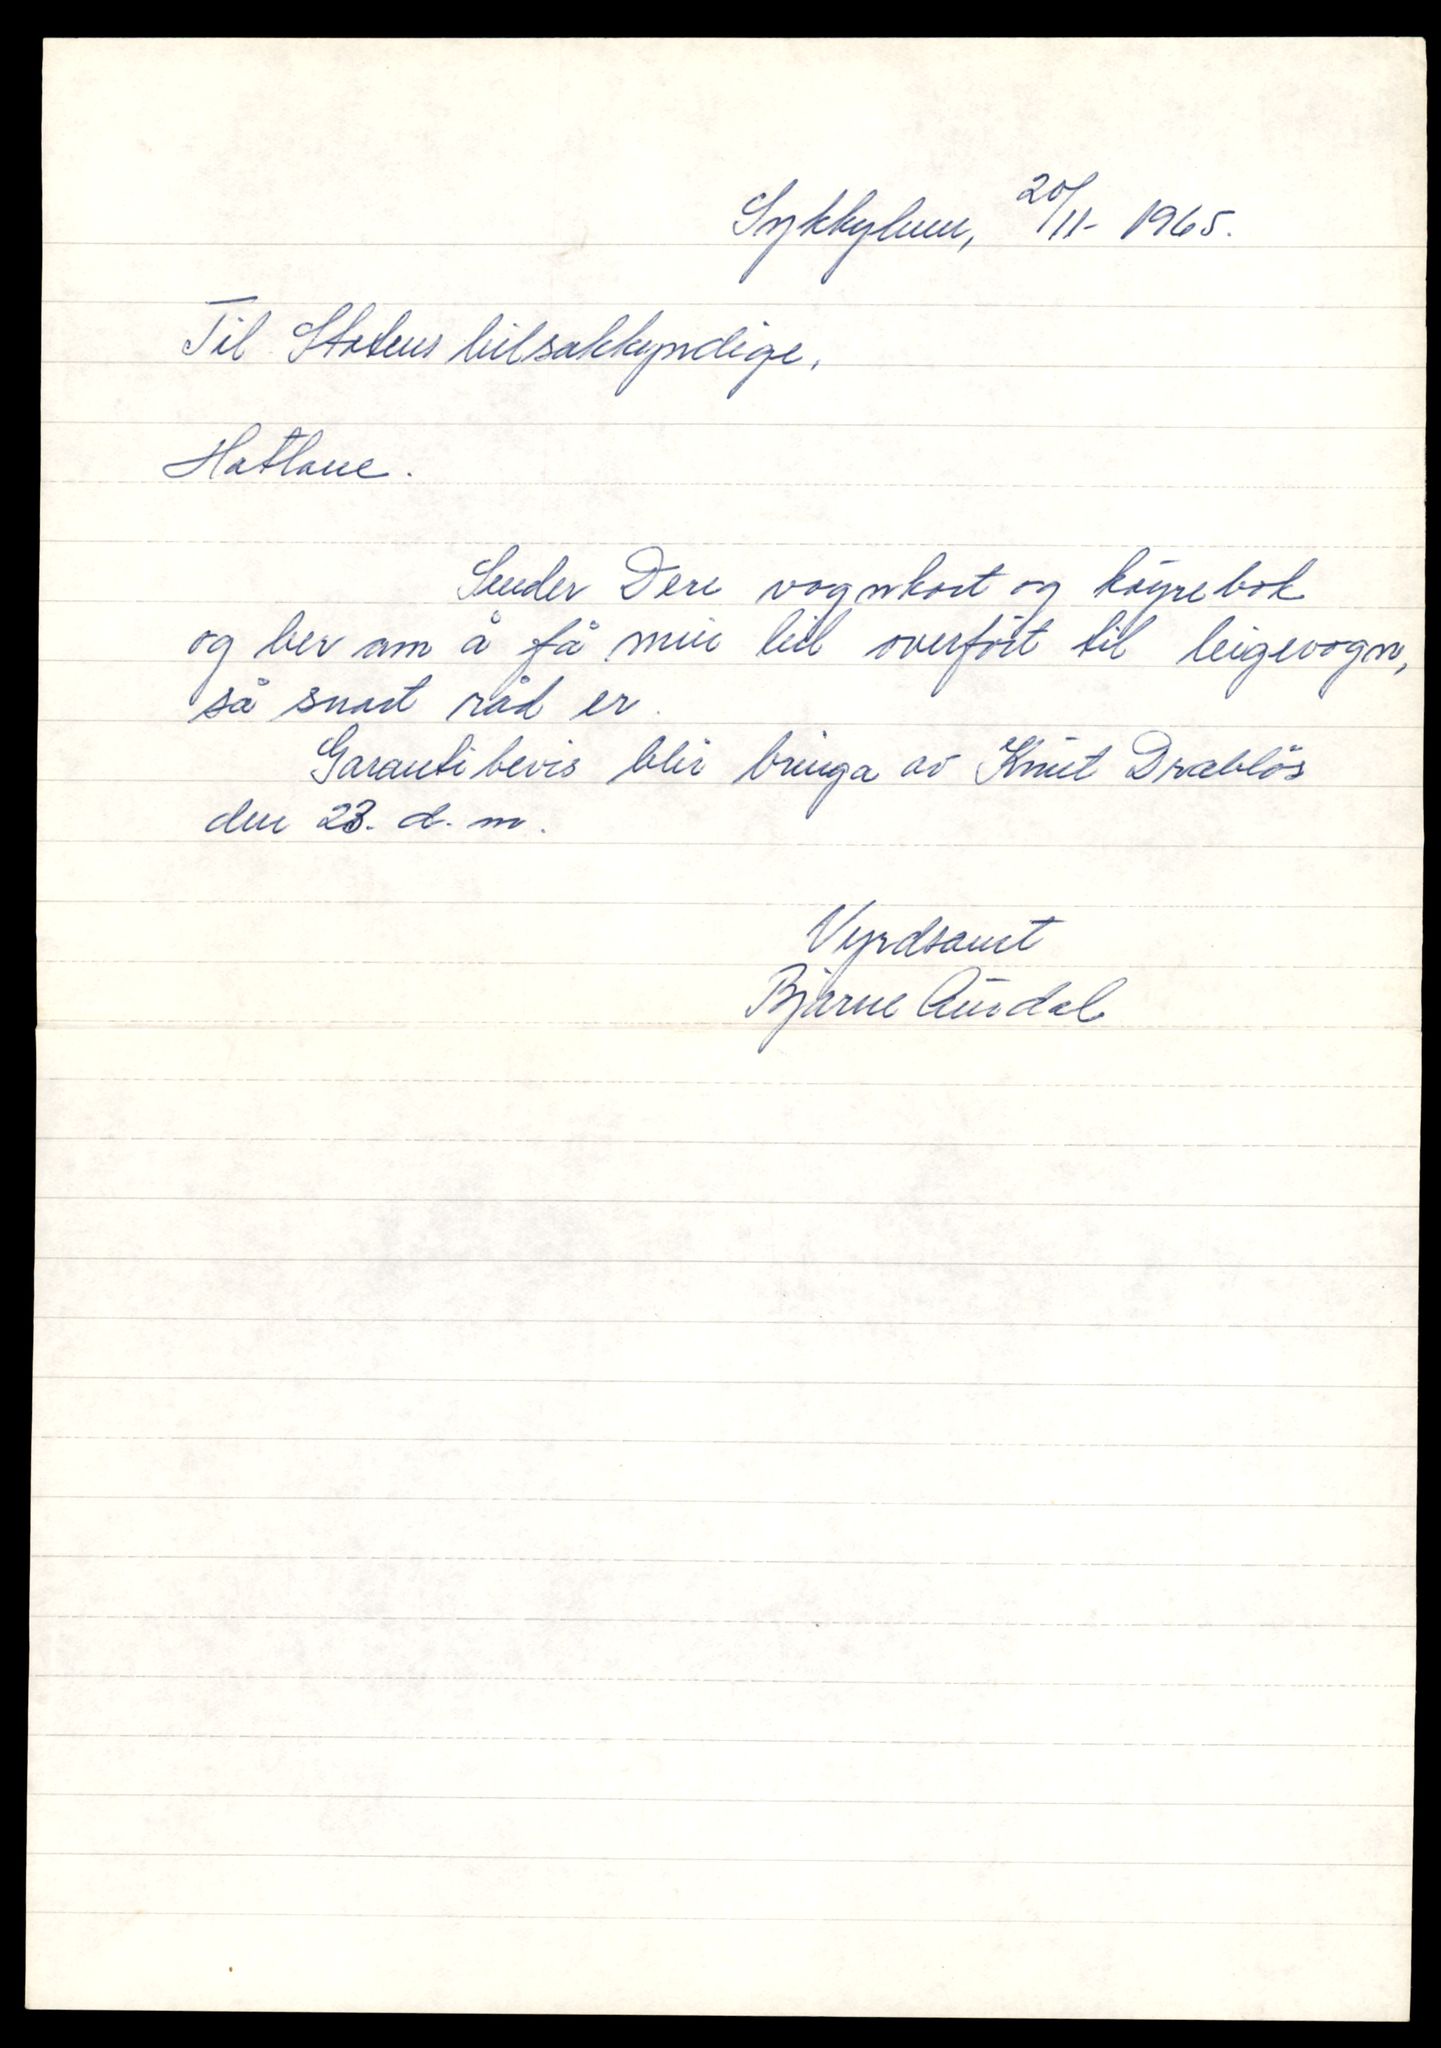 Sykkylven, 20/11- 1965.
Til Statens bilsakkyndige,
Hatlane.
Sender Dere vognkort og köyrebok
og ber om å få min bil overfört til leigevogn,
så snart råd er.
Garantibevis blir bringa av Knut Drabløs
den 23. d. m.
Vyrdsamt
Bjarne Aursdal